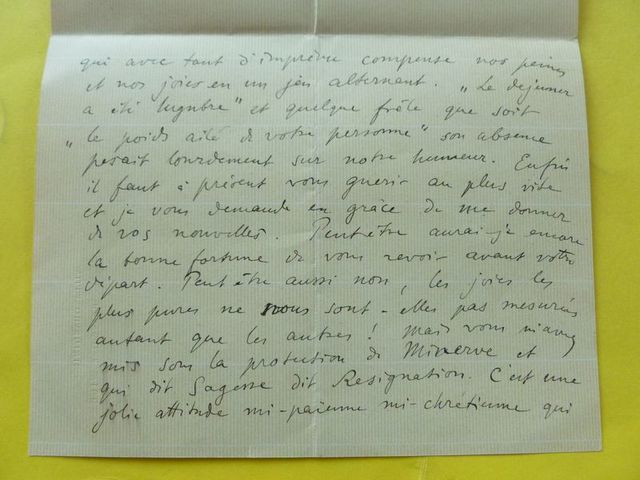 qui avec tant d'imprévu compense nos peines
et nos joies en un jeu alternant. „Le dejeuner
a été lugubre" et quelque frêle que soit
"le poids ailé de votre personne" son absence
pesait lourdement sur notre humeur. Enfin
il faut à présent vous guerir au plus vite
et je vous demande en grâce de me donner
de vos nouvelles. Peut être aurai-je encore
la bonne fortune de vous revoir avant votre
départ. Peut être aussi non, les joies les
plus pures ne nous sont-elles pas mesurées
autant que les autres ! Mais vous m'avez
mis sous la protection de Minerve et
qui dit Sagesse dit Resignation. C'est une
jolie attitude mi-païenne mi-chrétienne qui